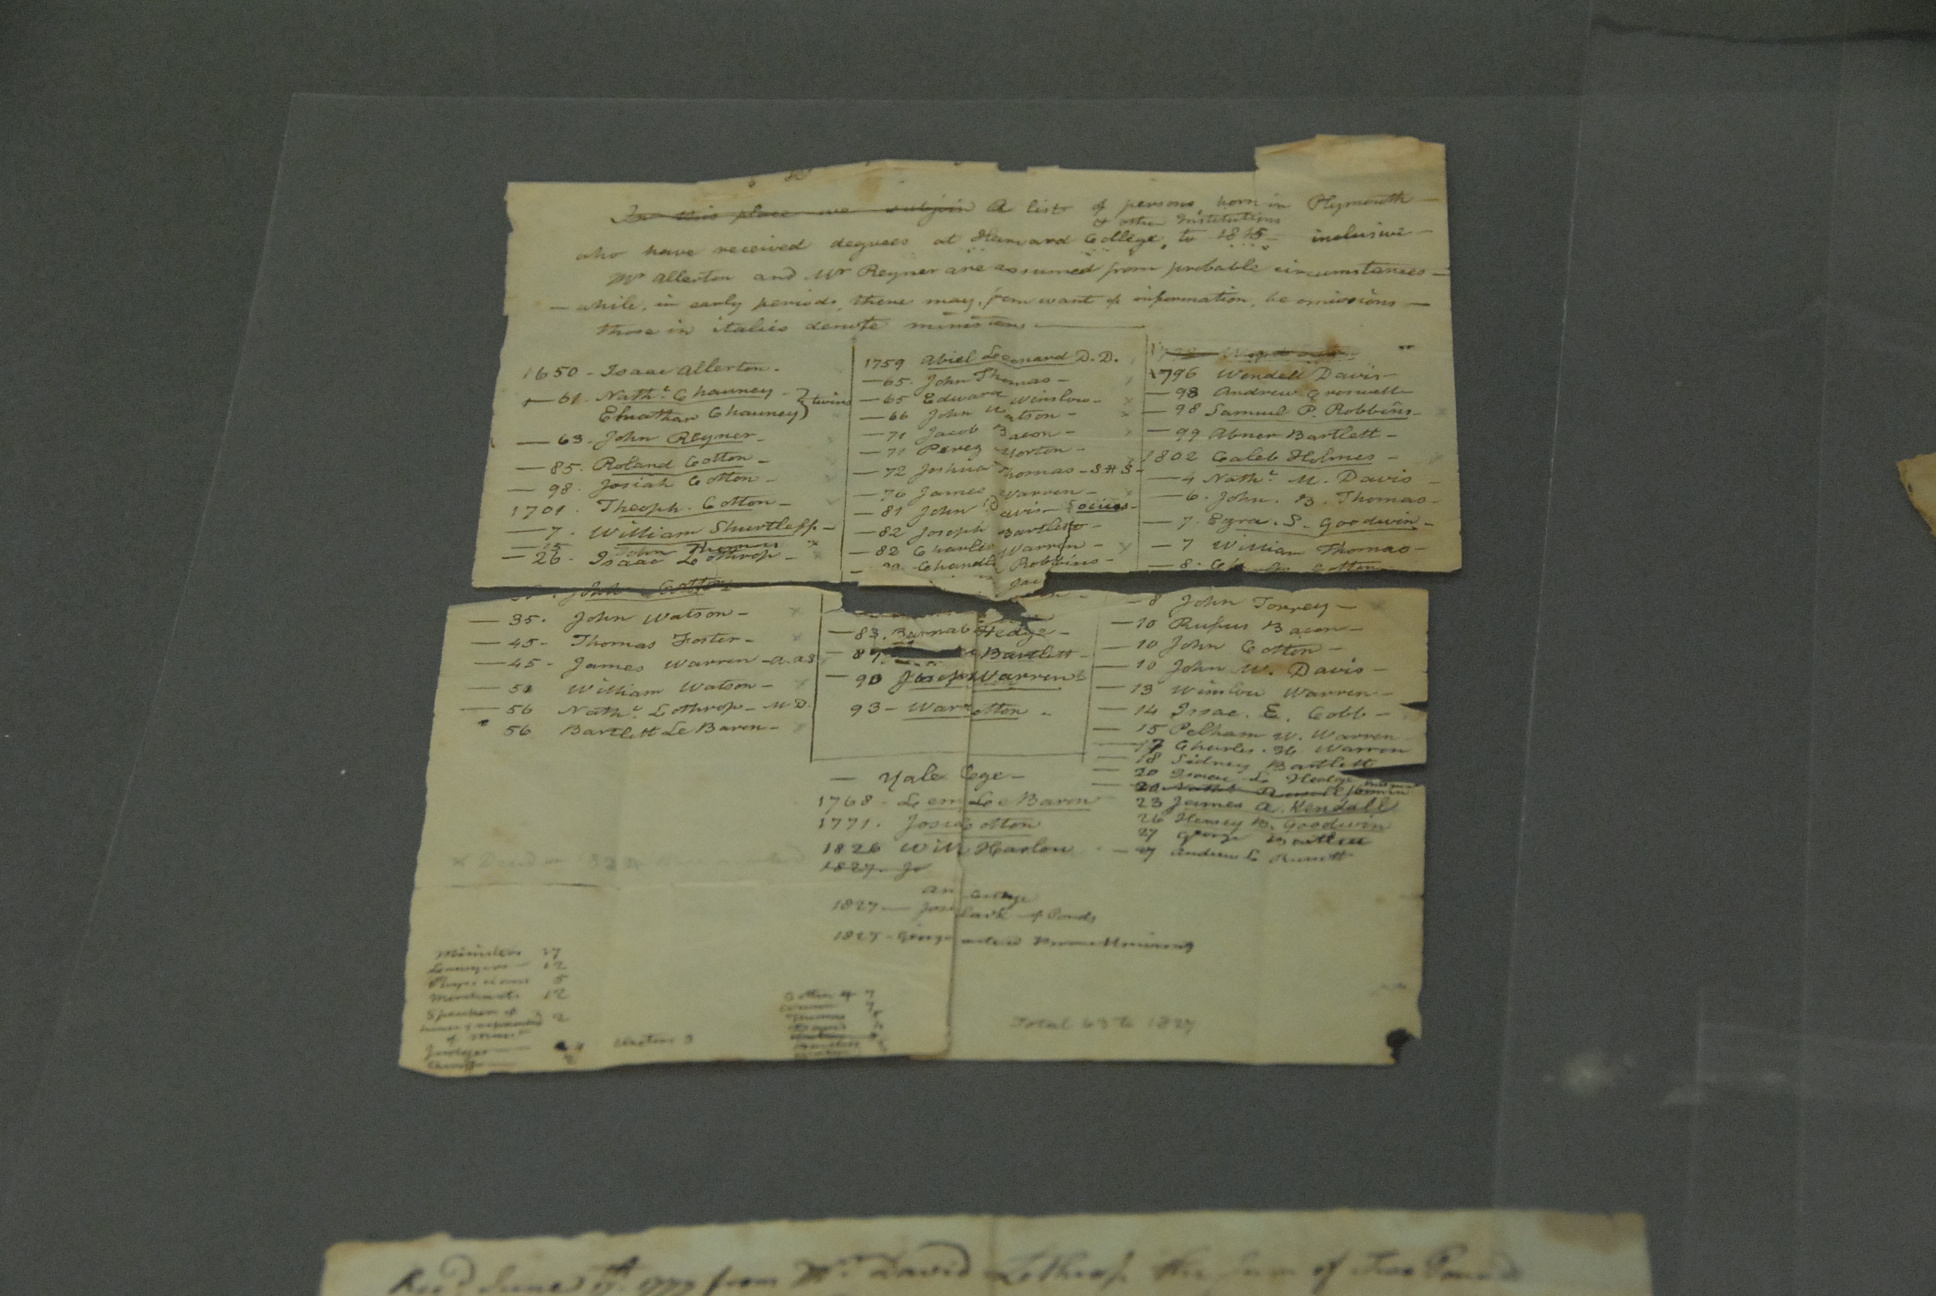 In this place we subjoin A list of persons born in Plymouth —
& other Institutions
who have received degrees at Harvard College, to 1815 — inclusive —
Mr Allerton and Mr Reyner are assumed from probable circumstances —
— while, in early periods, there may, from want of information, be omissions —
those in italics denote ministers —
1650 - Isaac Allerton.
— 61. Nathl. Chauncy - } twins
Elnathan Chauncy
— 63. John Reyner -
— 85. Roland Cotton -
— 98. Josiah Cotton -
1701. Theoph. Cotton -
— 7. William Shurtleff -
John Thomas
— 26. Isaac Lothrop -
John Cotton
— 35. John Watson - x
— 45 - Thomas Foster - x
— 45 - James Warren - a.a.s
— 51 William Watson - x
— 56 Nathl. Lothrop - M.D.
56 Bartlett Le Baron - x
1759 Abiel Leonard D.D.
— 65. John Thomas -
— 65 Edward Winslow -
— 66 John Watson -
— 71 Jacob Bacon -
— 71 Perez Morton -
— 72 Joshua Thomas - S.H.S -
— 76 James Warren -
— 81 John Davis - Socius -
— 82 Joseph Bartlett -
— 82 Charles Warren -
Chandl Robbins -
— 83. Barnab Hedge -
— 87 Bartlett -
— 90 Warren
93 - Ward otton -
— Yale Cege -
1768 - Lem Le Baron
1771. Josia otton
1826 Will Harlow
1827 - Jo
an College
1827 — Jos lark of Ponds
1827 - George
1796 Wendell Davis -
— 98 Andrew Croswell
— 98 Samuel P. Robbins -
— 99 Abner Bartlett -
1802 Caleb Holmes -
— 4 Nathl. M. Davis -
— 6. John. B. Thomas -
— 7. Ezra. S. Goodwin -
— 7 William Thomas -
— 8. otton -
— 8 John Torrey -
— 10 Rufus Bacon -
— 10 John Cotton -
— 10 John W. Davis -
— 13 Winslow Warren -
— 14 Issac. E. Cobb -
— 15 Pelham W. Warren
— 17 Charles. H. Warren
— 18 Sidney Bartlett
— 20 Isaac L. Hedge
20 Russell
23 James A. Kendall
26 Hersey B. Goodwin
27 George Bartlett
— 27 Andrew L. Russell
Ministers 17
Lawyers — 12
Physicians 5
Merchants 12
Speakers of 2
of Mass
Judges — 4
Sheriffs —
Cotton of 7
Warren 7
Thomas
Davis 4
Bartlett
Total 63 to 1827
Recd June 17th. 1777 from Mr. David Lothrop the Sum of Two Pound